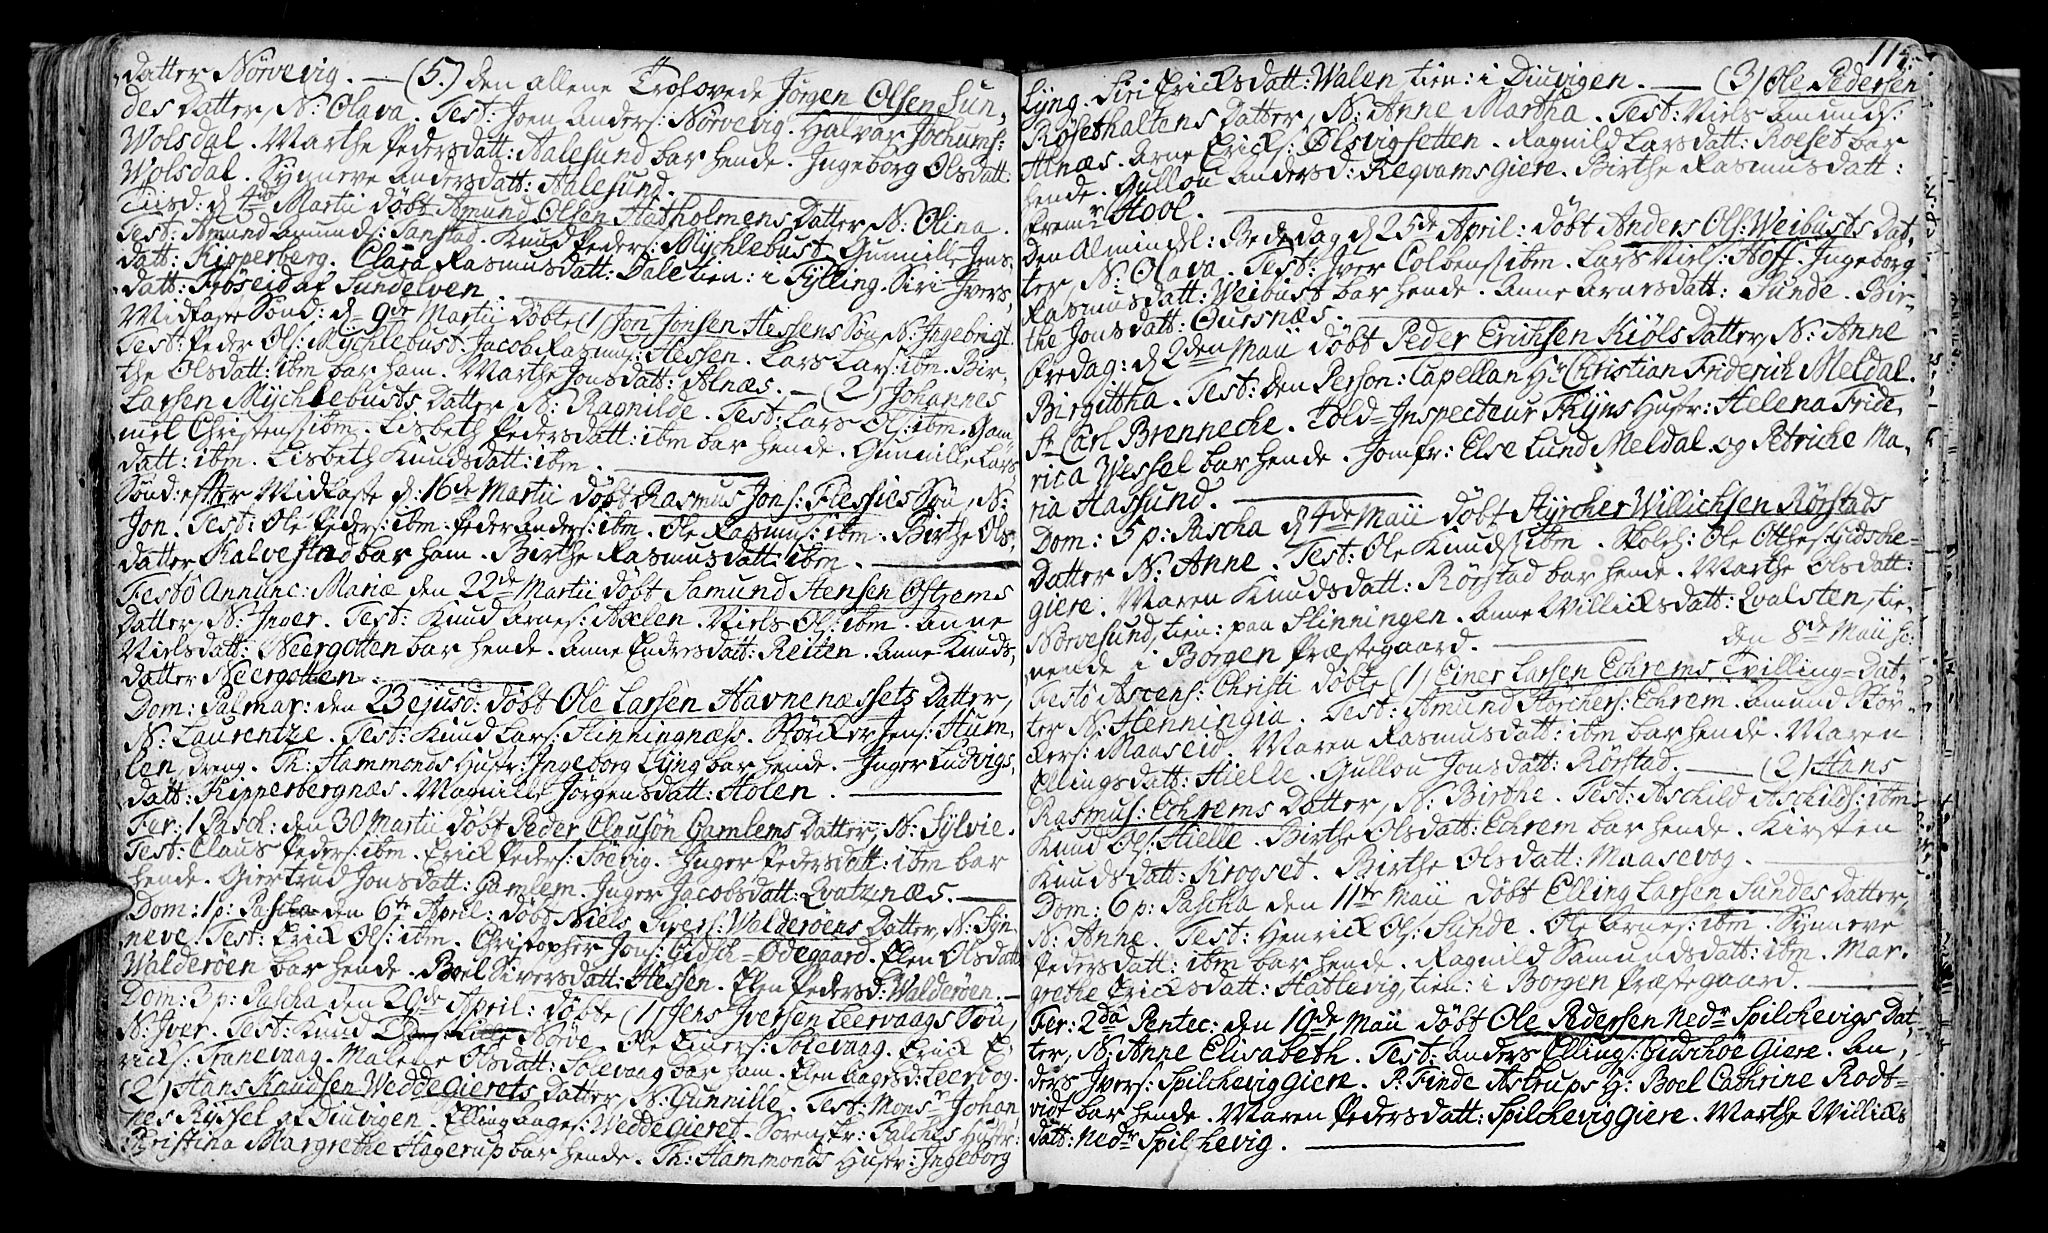 datter Nörvevig. — (5.) den allene Trolovede Jörgen Olsen Sun,
des Datter, N: Olava. Test: Joen Anders: Nörvevig. Halvar Jochums:
Wolsdal. Marthe Pedersdatt: Aalesund bar hende. Ingeborg Olsdatt:
Wolsdal. Synneve Andersdatt: Aalesund.
Tiisd: d 4de Martii döbt Amund Olsen Hatholmens Datter, N: Olina.
Test: Amund Amunds: Sanstad. Knud Peders: Mychlebust. Gunnille Jens,
datt: Kipperberg. Clara Rasmusdatt: Dale tien: i Fylling. Siri Ivers,
datt: Fröseid af Sundelven
Midfaste Sönd: d 9de Martii döbte (1) Jon Jonsen Hessens Sön, N: Ingebrigt.
Test: Peder Ols: Mychlebust. Jacob Rasmus: Hessen. Lars Lars: ibm. Bir,
the Olsdatt: ibm bar ham. Marthe Jonsdatt: Alnæs. — (2) Johannes
Larsen Mychlebusts Datter N: Ragnilde. Test: Lars Ol: ibm. Gam,
mel Christens: ibm. Lisbeth Pedersdatt: ibm bar hende. Gunnille Lars
datt: ibm. Lisbeth Knudsdatt: ibm.
Sönd: efter Midfaste d: 16de Martii döbt Rasmus Jons: Flessies Sön, N:
Jon. Test: Ole Peders: ibm. Peder Anders: ibm. Ole Rasmus: ibm. Birthe Ols,
datter Kalvestad bar ham. Birthe Rasmusdatt: ibm.
Festo Annunc: Mariæ den 22de Martii döbt Samund Hensen Ostrems
Datter, N: Inger. Test: Knud Arnes: Axelen. Niels Ol: ibm. Anne
Nielsdatt: Neergotten bar hende. Anne Endresdatt: Reiten. Anne Knuds,
datter Neergotten.
Dom: Palmar: den 23 ejusd: döbt Ole Larsen Havnenæssets Datter,
N: Laurentze. Test: Knud Lars: Flinningnæss. Störker Jens: Hum,
len, dreng. Th: Hammonds Hustr: Ingeborg Lyng bar hende. Inger Ludvigs,
datt: Kipperbergnæs. Magnille Jörgensdatt: Holen.
Fer: 1 Pasch: den 30 Martii döbt Peder Clausön Gamlems Datter, N: Sylvie.
Test: Claus Peders: ibm. Erick Peders: Söevig. Inger Pedersdatt: ibm bar
hende. Giertrud Jonsdatt: Gamlem. Inger Jacobsdatt: Qvatznæs.
Dom: 1 p: Pascha den 6te April: döbt Niels Sivers: Walderöens Datter, N: Syn,
neve. Test: Erick Ols: ibm. Christopher Jons: Gidsch=Ödegaard. Elen Olsdatt
Walderöen bar hende. Boel Siversdatt: Hessen. Elen Pedersd: Walderöen. —
Dom: 3 p: Pascha den 20de April: döbte (1) Jens Iversen Leervaags Sön,
N: Iver. Test: Knud Nörve. Ole Einers: Solevaag. Erick E,
ricks: Tranevaag. Malene Olsdatt: Solevaag bar ham. Elen Aagesd: Leervog.
(2) Hans Knudsen Weddegierets Datter, N: Gunnille. Test: Monsr Johan,
nes Ryssel af Diuvigen. Elling Aages: Weddegieret. Sören Fr: Falches Hustr:
Christina Margrethe Hagerup bar hende. Th: Hammonds Hustr: Ingeborg
115.
Lyng. Siri Ericksdatt: Walen tien: i Diuvigen. — (3) Ole Pedersen
Rösethaltens Datter, N: Anne Martha. Test: Niels Amunds:
Alnæs. Arne Ericks: Ölsvigsetten. Ragnild Larsdatt: Roeset bar
hende. Gullou Andersd: Reqvamsgiere. Birthe Rasmusdatt:
Fremr Hool.
Den Almindel: Bededag d 25de April: döbt Anders Ols: Weibusts Dat,
ter, N: Olava. Test: Iver Colbens: ibm. Lars Niels: Hoff. Ingeborg
Rasmusdatt: Weibust bar hende. Anne Arnesdatt: Sunde. Bir,
the Jonsdatt: Oursnæs.
Fredag: d 2den Maii döbt Peder Erichsen Kiöls Datter, N: Anne
Birgittha. Test: den Person: Capellan Hr Christian Friderich Meldal.
Sr Carl Brennecke. Told=Inspecteur Thyns Hustr: Helena Fride,
rica Wessel bar hende. Jomfr: Else Lund Meldal og Petricke Ma,
ria Hassund.
Dom: 5 p: Pascha d 4de Maii döbt Styrcher Willichsen Rörstads
Datter N: Anne. Test: Ole Knuds: ibm. Skoleh: Ole Otthes: Gidsche=
giere. Maren Knudsdatt: Rörstad bar hende. Marthe Olsdatt:
Nörvesund, tien: paa Slinningen. Anne Willicksdatt: Qvalsten, tie,
nende i Borgen Præstegaard. — den 8de Maii sc:
Festo Ascens: Christi döbte (1) Einer Larsen Echrems Tvilling=Dat,
ter N: Henningia. Test: Amund Storchers: Echrem. Amund Stör,
kers: Maaseid. Maren Rasmusdatt: ibm bar hende. Maren
Ellingsdatt: Hielle. Gullou Jonsdatt: Rörstad. — (2) Hans
Rasmus: Echrems Datter, N: Birthe. Test: Aschild Aschilds: ibm.
Knud Ol: Hielle. Birthe Olsdatt: Echrem bar hende. Kirsten
Knudsdatt: Krogset. Birthe Olsdatt: Maasevog.
Dom: 6 p: Pascha den 11te Maii döbt Elling Larsen Sundes Datter,
N: Anne. Test: Henrick Ols: Sunde. Ole Arnes: ibm. Synneve
Pedersdatt: ibm bar hende. Ragnild Samundsdatt: ibm. Mar,
grethe Ericksdatt: Hattevig, tien: i Borgen Præstegaard.
Fer: 2da Pentec: den 19de Maii döbt Ole Pedersen Nedr Spilchevigs Dat,
ter, N: Anne Elisabeth. Test: Anders Ellings: Gidschöe Giere. An,
ders Ivers: Spilchevig Giere. P: Finde Astrups H: Boel Cathrine Rodt=
vidt bar hende. Maren Pedersdatt: Spilchevig Giere. Marthe Willicks
datt: Nedr Spilchevig.